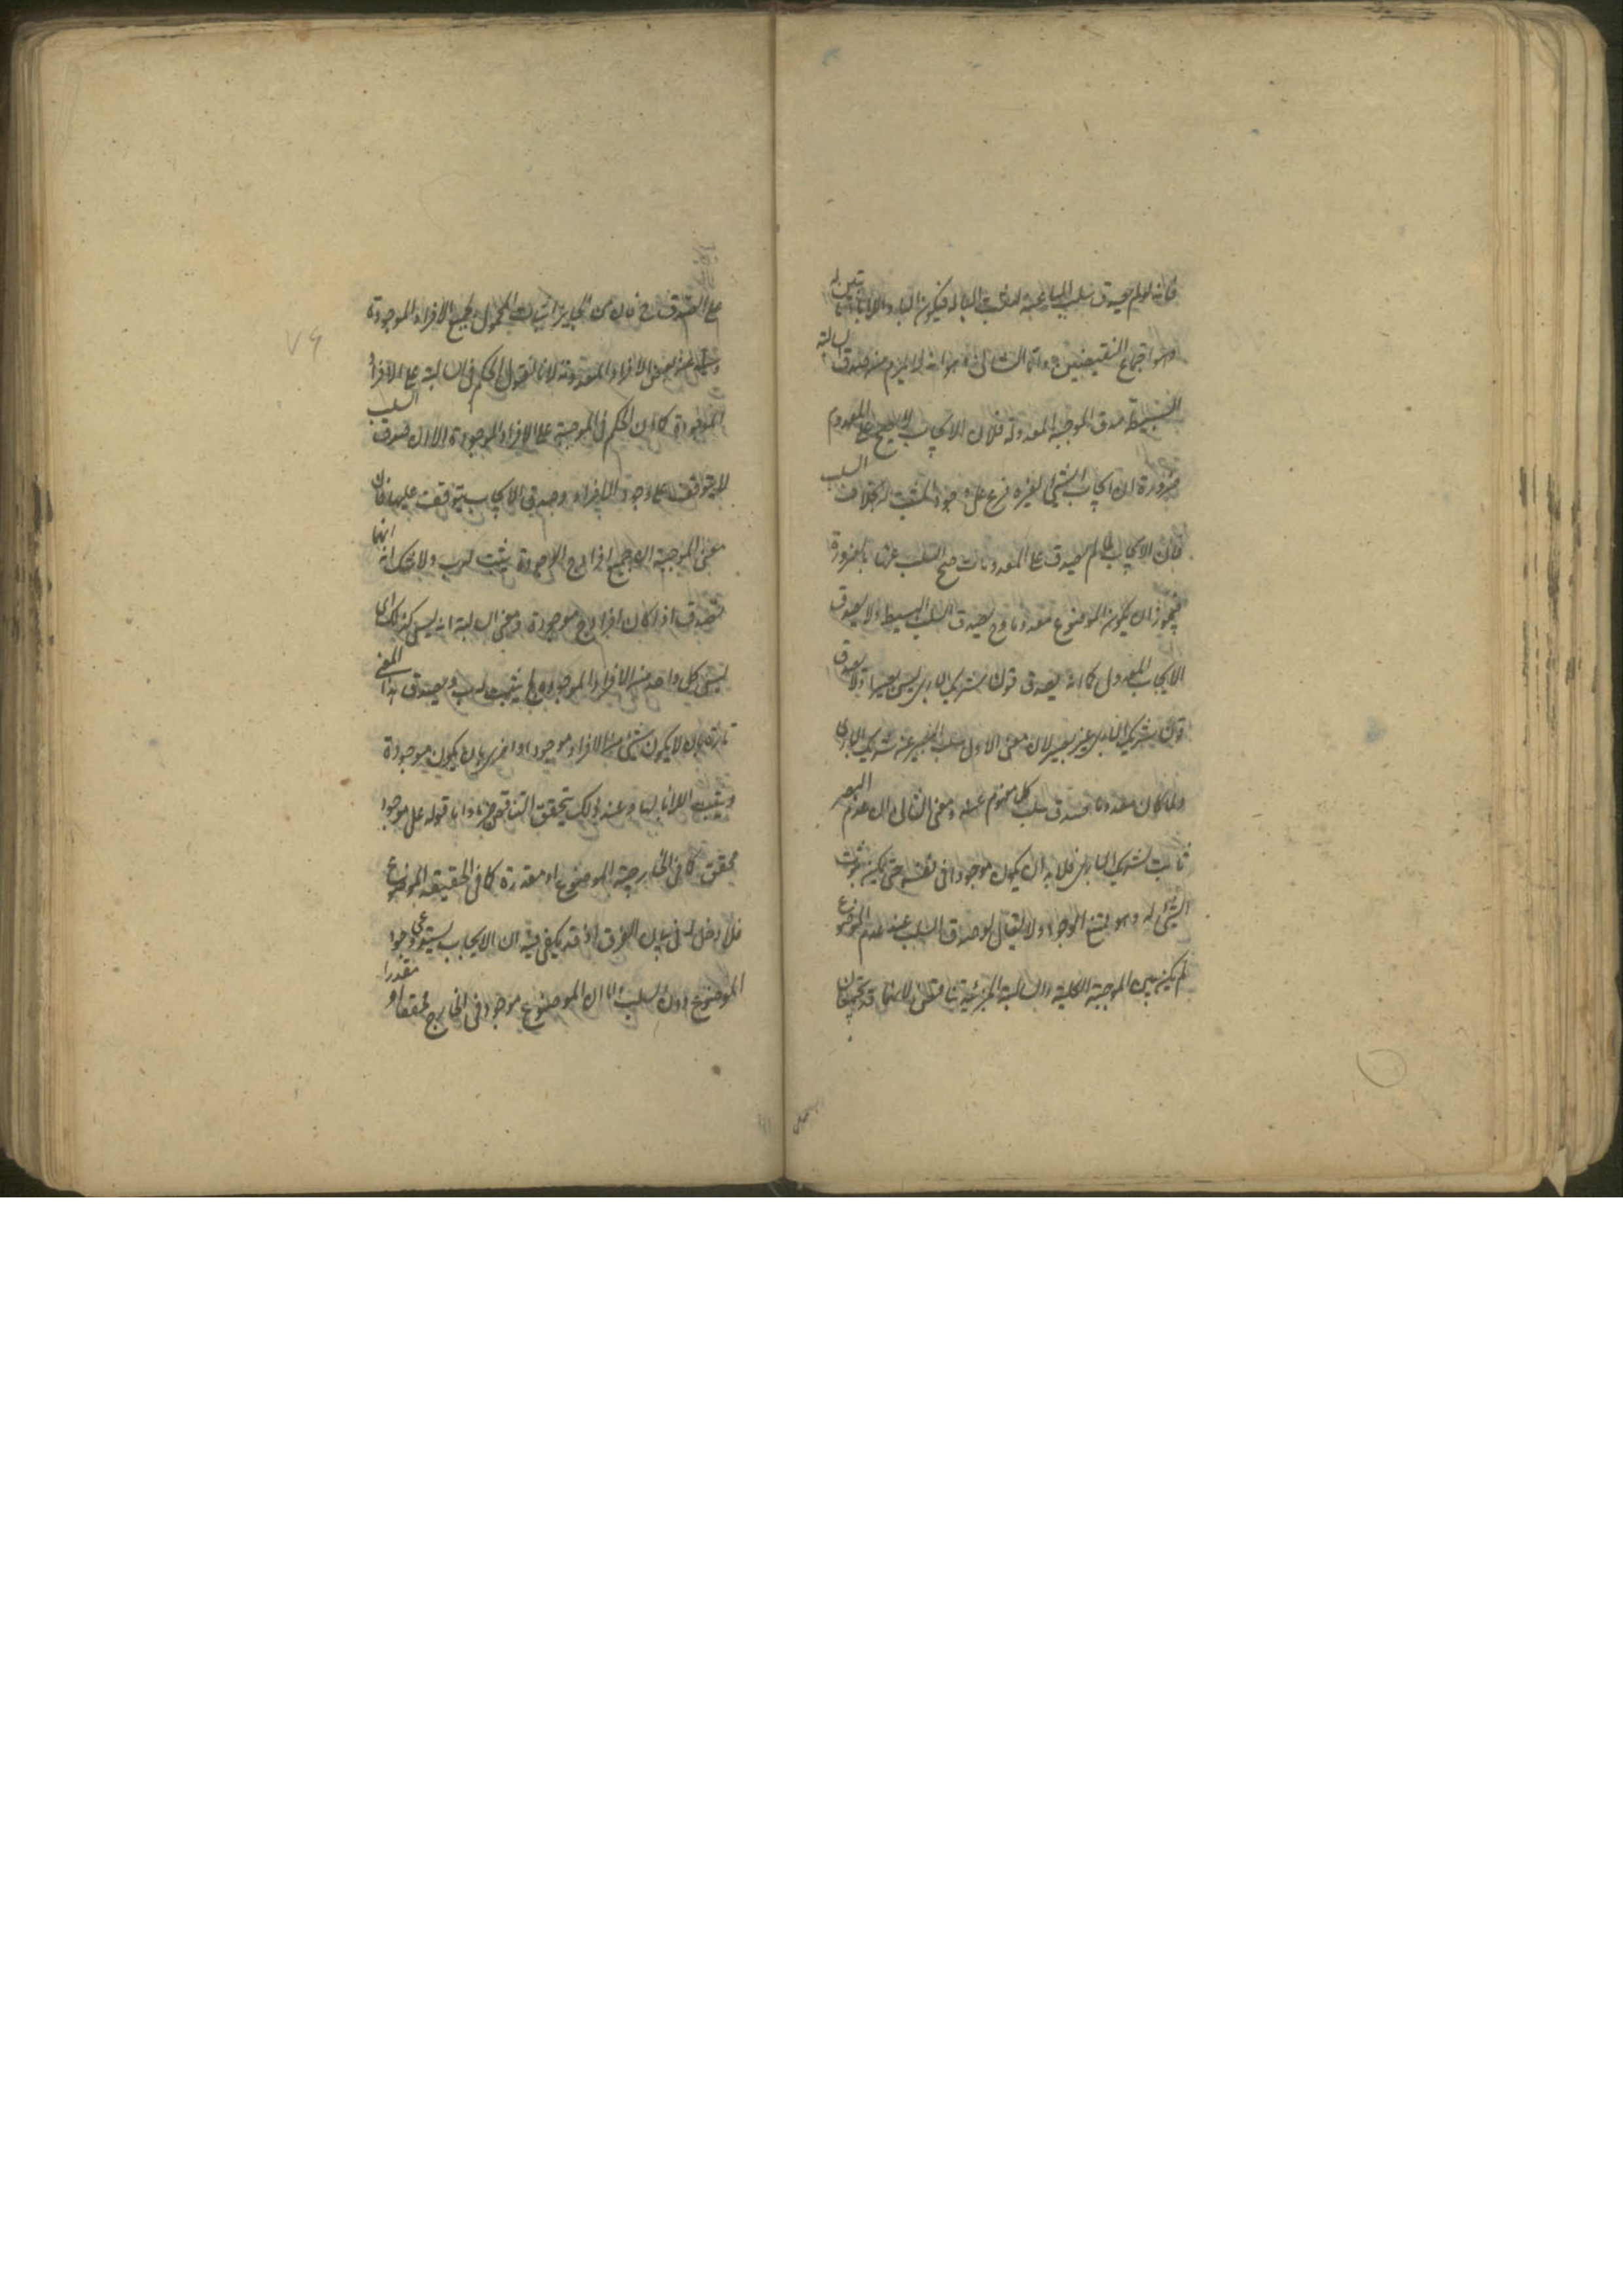 فانه لو لم يصدق سلب الباء عنه لثبت الباء له فيكون الباء واللاباء ثابتين له
وهو اجتماع النقيضين واما الثانى وهو انه لا يلزم من صدق السالبة
البسيطة صدق الموجبة المعدولة فلان الايجاب لا يصح على المعدوم
ضرورة ان ايجاب الشئ لغيره فرع على وجود المثبت له بخلاف السلب
فان الايجاب لما لم يصدق على المعدومات صح السلب عنها بالضرورة
فيجوز ان يكون الموضوع معدوما وح يصدق السلب البسيط ولا يصدق
الايجاب المعدول كما انه يصدق قولنا شريك البارى ليس ببصير ولا يصدق
قولنا شريك البارى غير بصير لان معنى الاول سلب البصر عن شريك البارى
ولما كان معدوما صدق سلب كل مفهوم عنه ومعنى الثانى ان عدم البصر
ثابت لشريك البارى فلا بد ان يكون موجودا فى نفسه حتى يمكن ثبوت
الشئ له وهو ممتنع الوجود ولا يقال لو صدق السلب عند عدم الموضوع
لم يكن بين الموجبة الكلية والسالبة الجزئية تناقض لانهما قد يجتمعان
على الصدق ح فان من الجايز اثبات المحمول لجميع الافراد الموجودة
وسلبه عن بعض الافراد المعدومة لانا نقول الحكم فى السالبة على الافراد
الموجودة كما ان الحكم فى الموجبة على الافراد الموجودة الا ان صدق السلب
لا يتوقف على وجود الافراد وصدق الايجاب يتوقف عليها فان
معنى الموجبة ان جميع افراد ج الموجودة يثبت له ب ولا شك انه انما
تصدق اذا كان افراد ج موجودة ومعنى السالبة انه ليس كذلك اى
ليس كل واحد من الافراد الموجودة لج يثبت له ب ويصدق هذا المعنى
تارة بان لا يكون شئ من الافراد موجودا واخرى بان يكون موجودة
ويثبت اللاباء لها وعند ذلك يتحقق التناقض جزما واما قوله على موجود
محقق كما فى الخارجية الموضوع او مقدرة كما فى الحقيقة الموضوع
فلا دخل له فى بيان الفرق اذ قد يكفى فيه ان الايجاب يستدعى وجود
الموضوع دون السلب اما ان الموضوع موجود فى الخارج محققا او مقدرا